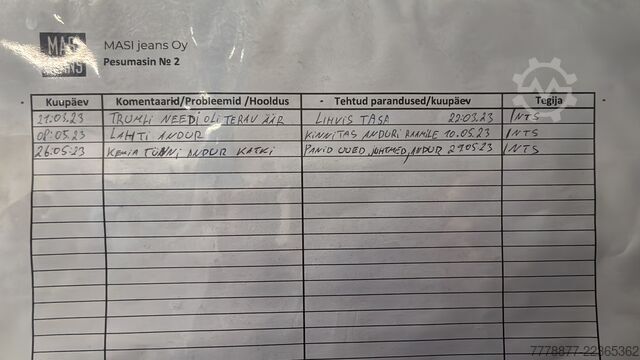 MASI JEANS
MASI jeans Oy
Pesumasin № 2
Kuupäev Komentaarid/Probleemid /Hooldus Tehtud parandused/kuupäev Tegija
21.03.23 TRUMLI NEEDI OLI TERAV ÄÄR LIHVIS TASA 22.03.23 INTS
08.05.23 LAHTI ANDUR KINNITAS ANDURI RAAMILE 10.05.23 INTS
26.05.23 KEMIA TÜNNI ANDUR KATKI PANID UUED, JUHTMED, ANDUR 29.05.23 INTS
7778877-22365362